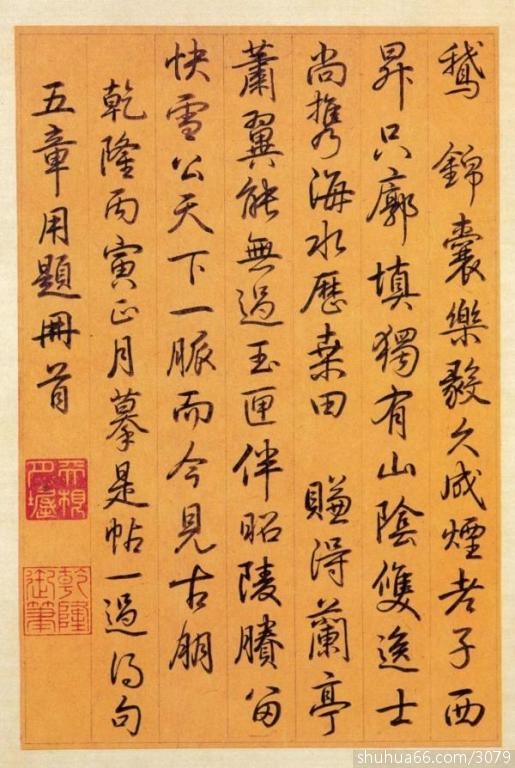 鵝 錦囊樂毅久成煙老子西
昇只廓填獨有山陰雙逸士
尚攜海水歷桑田 賺得蘭亭
蕭翼能無過玉匣伴昭陵賸留
快雪公天下一脈而今見古朋
乾隆丙寅正月摹是帖一過得句
五章用題冊首
乾隆御筆
shuhua66.com/3079